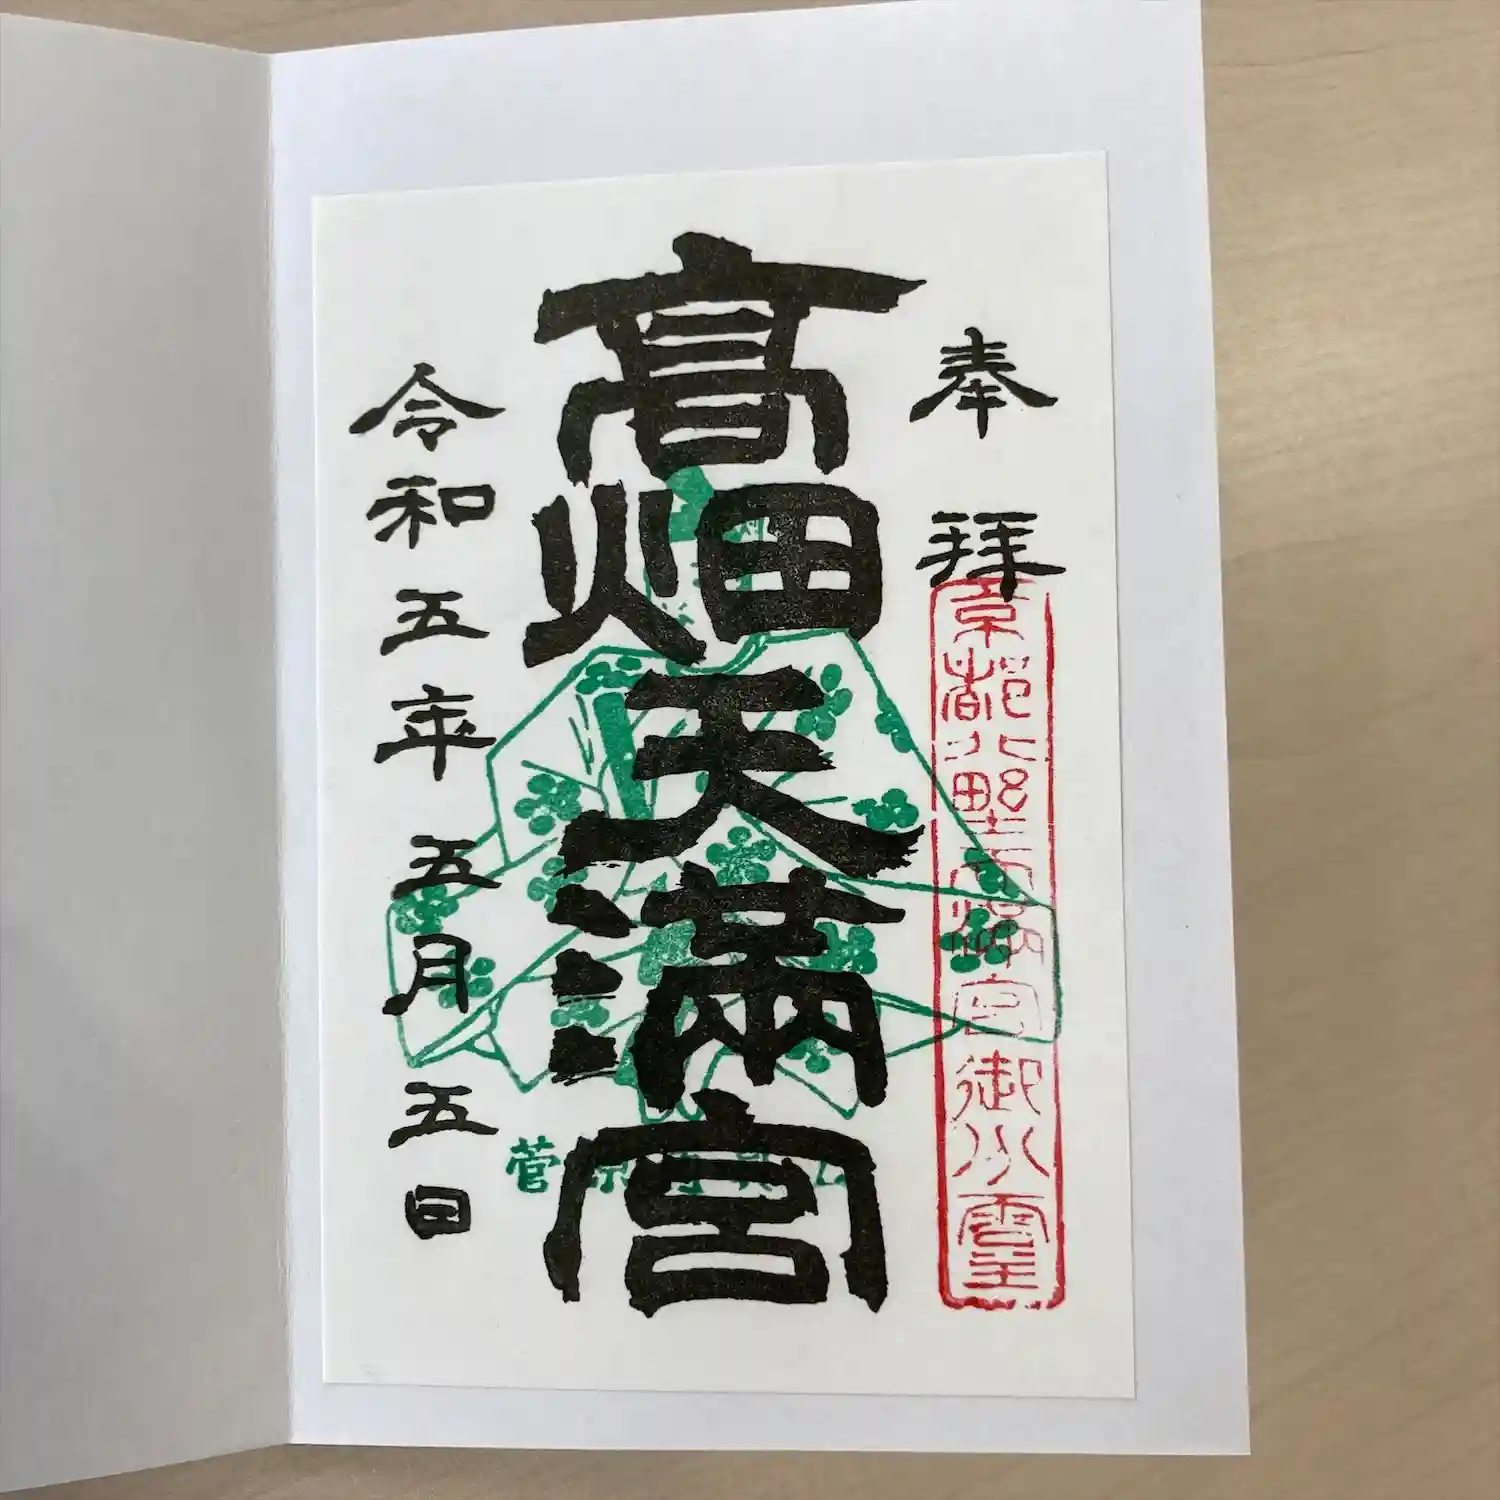 奉拝
京都北野天満宮御分霊
高畑天満宮
菅原
令和五年五月五日